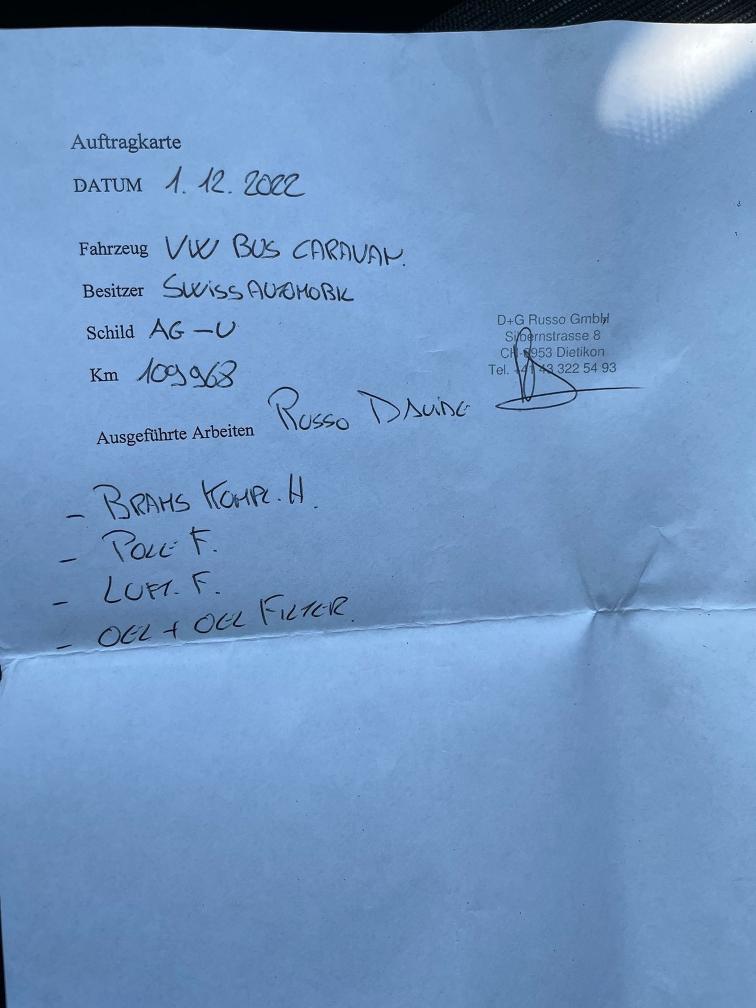 Auftragkarte
DATUM 1. 12. 2022
Fahrzeug VW BUS CARAVAN.
Besitzer SWISSAUTOMOBIL
Schild AG-U
Km 109968
D+G Russo GmbH
Silbernstrasse 8
CH-8953 Dietikon
Tel. +41 43 322 54 93
Ausgeführte Arbeiten RUSSO DAVIDE
- BRAMS KOMPL. H.
- POLL F.
- LUFT. F.
- OEL + OEL FILTER.